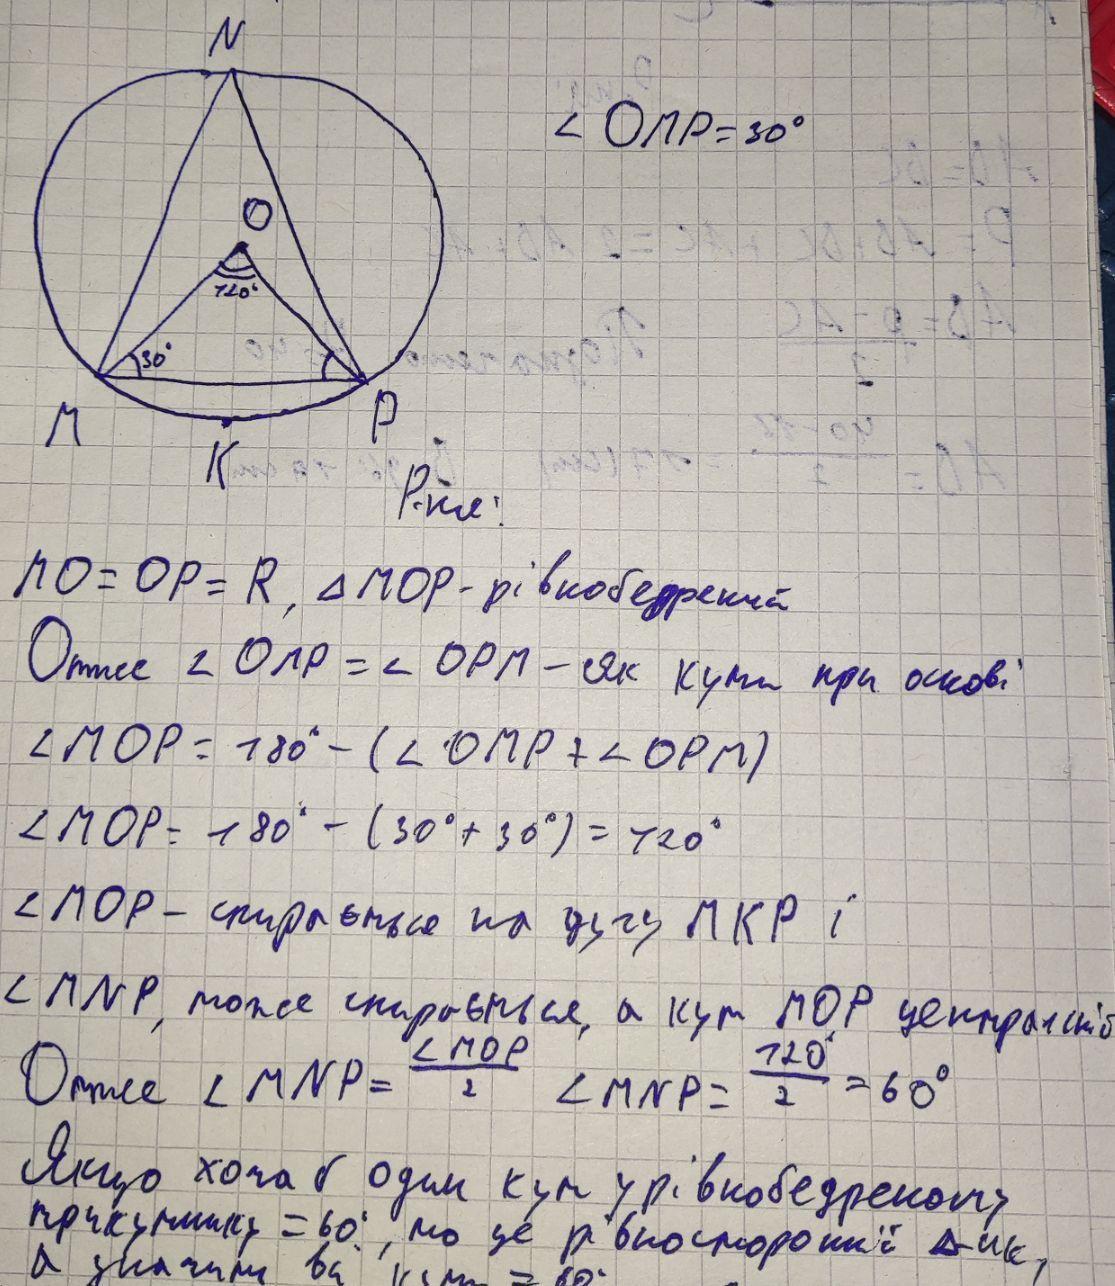 N
∠ OMP = 30°
O
120°
30°
M
P
K
Р-ня:
MO = OP = R, △MOP - рівнобедрений
Отже ∠ OMP = ∠ OPM - як кути при основі
∠MOP = 180° - (∠ OMP + ∠ OPM)
∠MOP = 180° - (30° + 30°) = 120°
∠MOP - спирається на дугу MKP і
∠MNP, може спирається, а кут MOP центральний
Отже ∠ MNP = ∠MOP/2 ∠MNP = 120°/2 = 60°
Якщо хоча б один кут у рівнобедреному
трикутнику = 60°, то це рівносторонній △-ик,
а значить всі кути = 60°